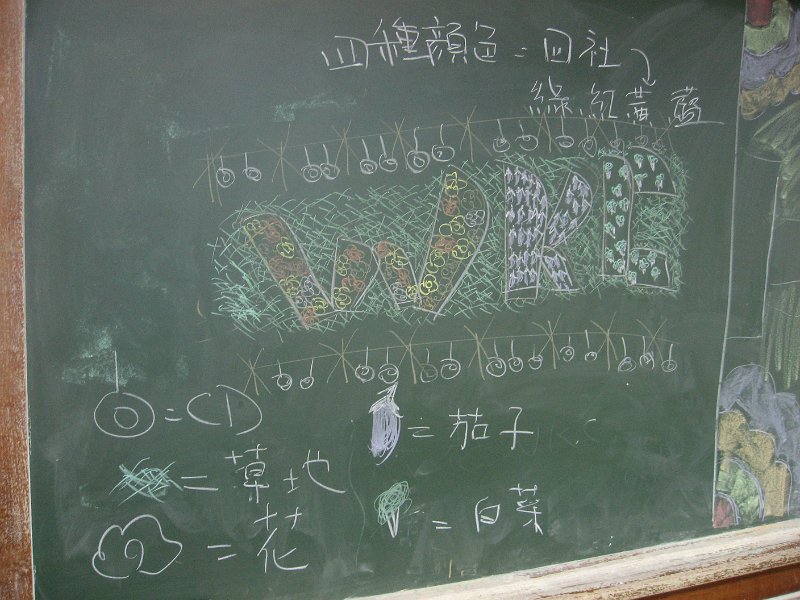 四種顏色=四社
綠.紅黃.藍
WKF
=CD
=茄子
=草地
=白菜
=花